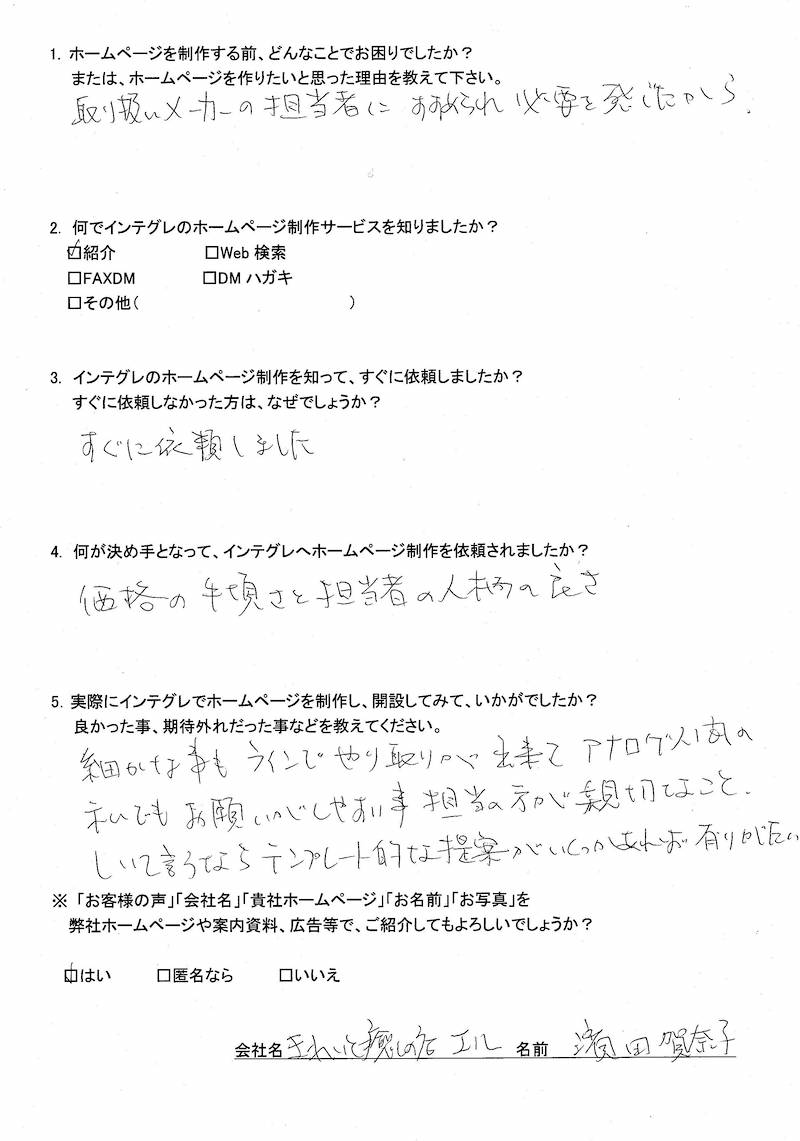 1. ホームページを制作する前、どんなことでお困りでしたか？
または、ホームページを作りたいと思った理由を教えて下さい。
取り扱いメーカーの担当者に おすすめられ 必要を感じたから.
2. 何でインテグレのホームページ制作サービスを知りましたか？
☑紹介 □Web 検索
□FAXDM □DM ハガキ
□その他( )
3. インテグレのホームページ制作を知って、すぐに依頼しましたか？
すぐに依頼しなかった方は、なぜでしょうか？
すぐに依頼しました
4. 何が決め手となって、インテグレへホームページ制作を依頼されましたか？
価格の手頃さと担当者の人柄の良さ
5. 実際にインテグレでホームページを制作し、開設してみて、いかがでしたか？
良かった事、期待外れだった事などを教えてください。
細かな事も ラインで やり取りが 出来て アナログ人間の
私でも お願いがしやすい事 担当の方が 親切なこと.
しいて言うなら テンプレート的な提案がいくつかあれば 有りがたい
※ 「お客様の声」「会社名」「貴社ホームページ」「お名前」「お写真」を
弊社ホームページや案内資料、広告等で、ご紹介してもよろしいでしょうか？
☑はい □匿名なら □いいえ
会社名 きれいと癒しの店 エル 名前 濱田 賀奈子